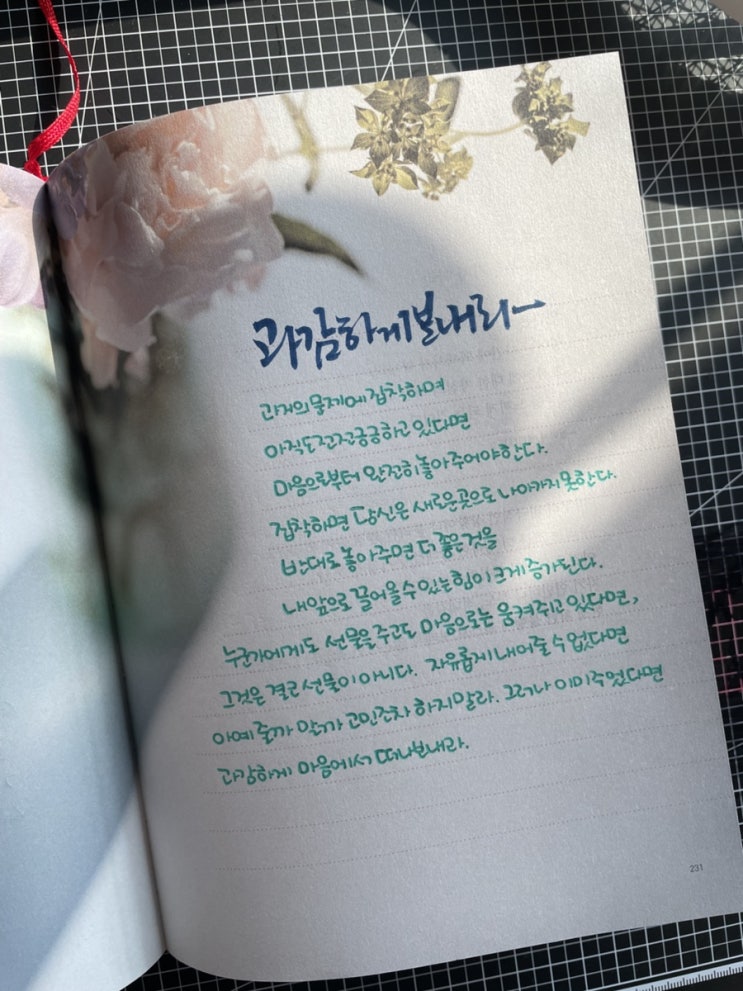 과감하게 보내라~
과거의 문제에 집착하며
아직도 전전긍긍하고 있다면
마음으로부터 완전히 놓아 주어야 한다.
집착하면 당신은 새로운 곳으로 나아가지 못한다.
반대로 놓아주면 더 좋은 것을
내 앞으로 끌어올 수 있는 힘이 크게 증가된다.
누군가에게도 선물을 주고도 마음으로는 움켜쥐고 있다면,
그것은 결코 선물이 아니다. 자유롭게 내어줄 수 없다면
아예 줄까 말까 고민조차 하지 말라. 그러나 이미 주었다면
과감하게 마음에서 떠나보내라.
231